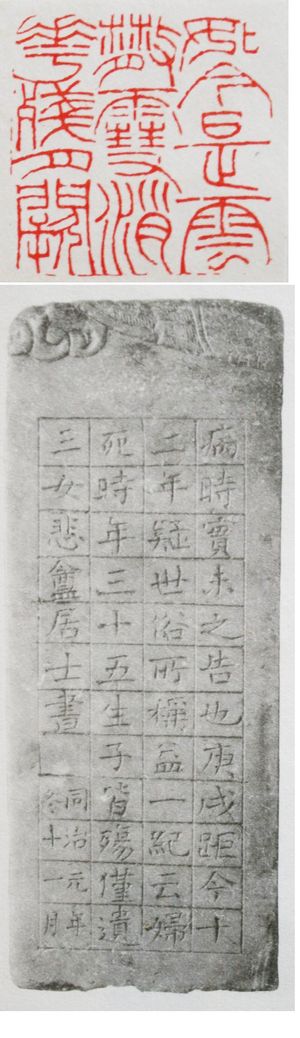 如今是雲
散雪消
花殘月闕
病時實未之告也庚戌距今十
二年疑世俗所稱益一紀云婦
死時年三十五生子皆殤僅遺
三女悲盦居士書
同治元年
冬十一月